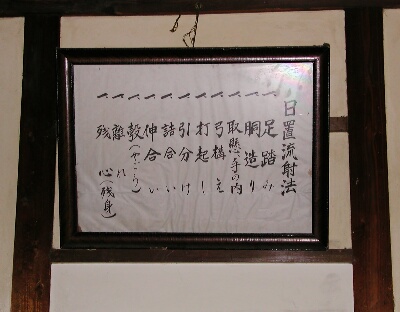 日置流射法
一、足踏み
一、胴造り
一、取懸け手の内
一、弓構え
一、打起し
一、引分け
一、詰合い
一、伸合い
一、彀(やごろ)
一、離れ
一、残心(残身)